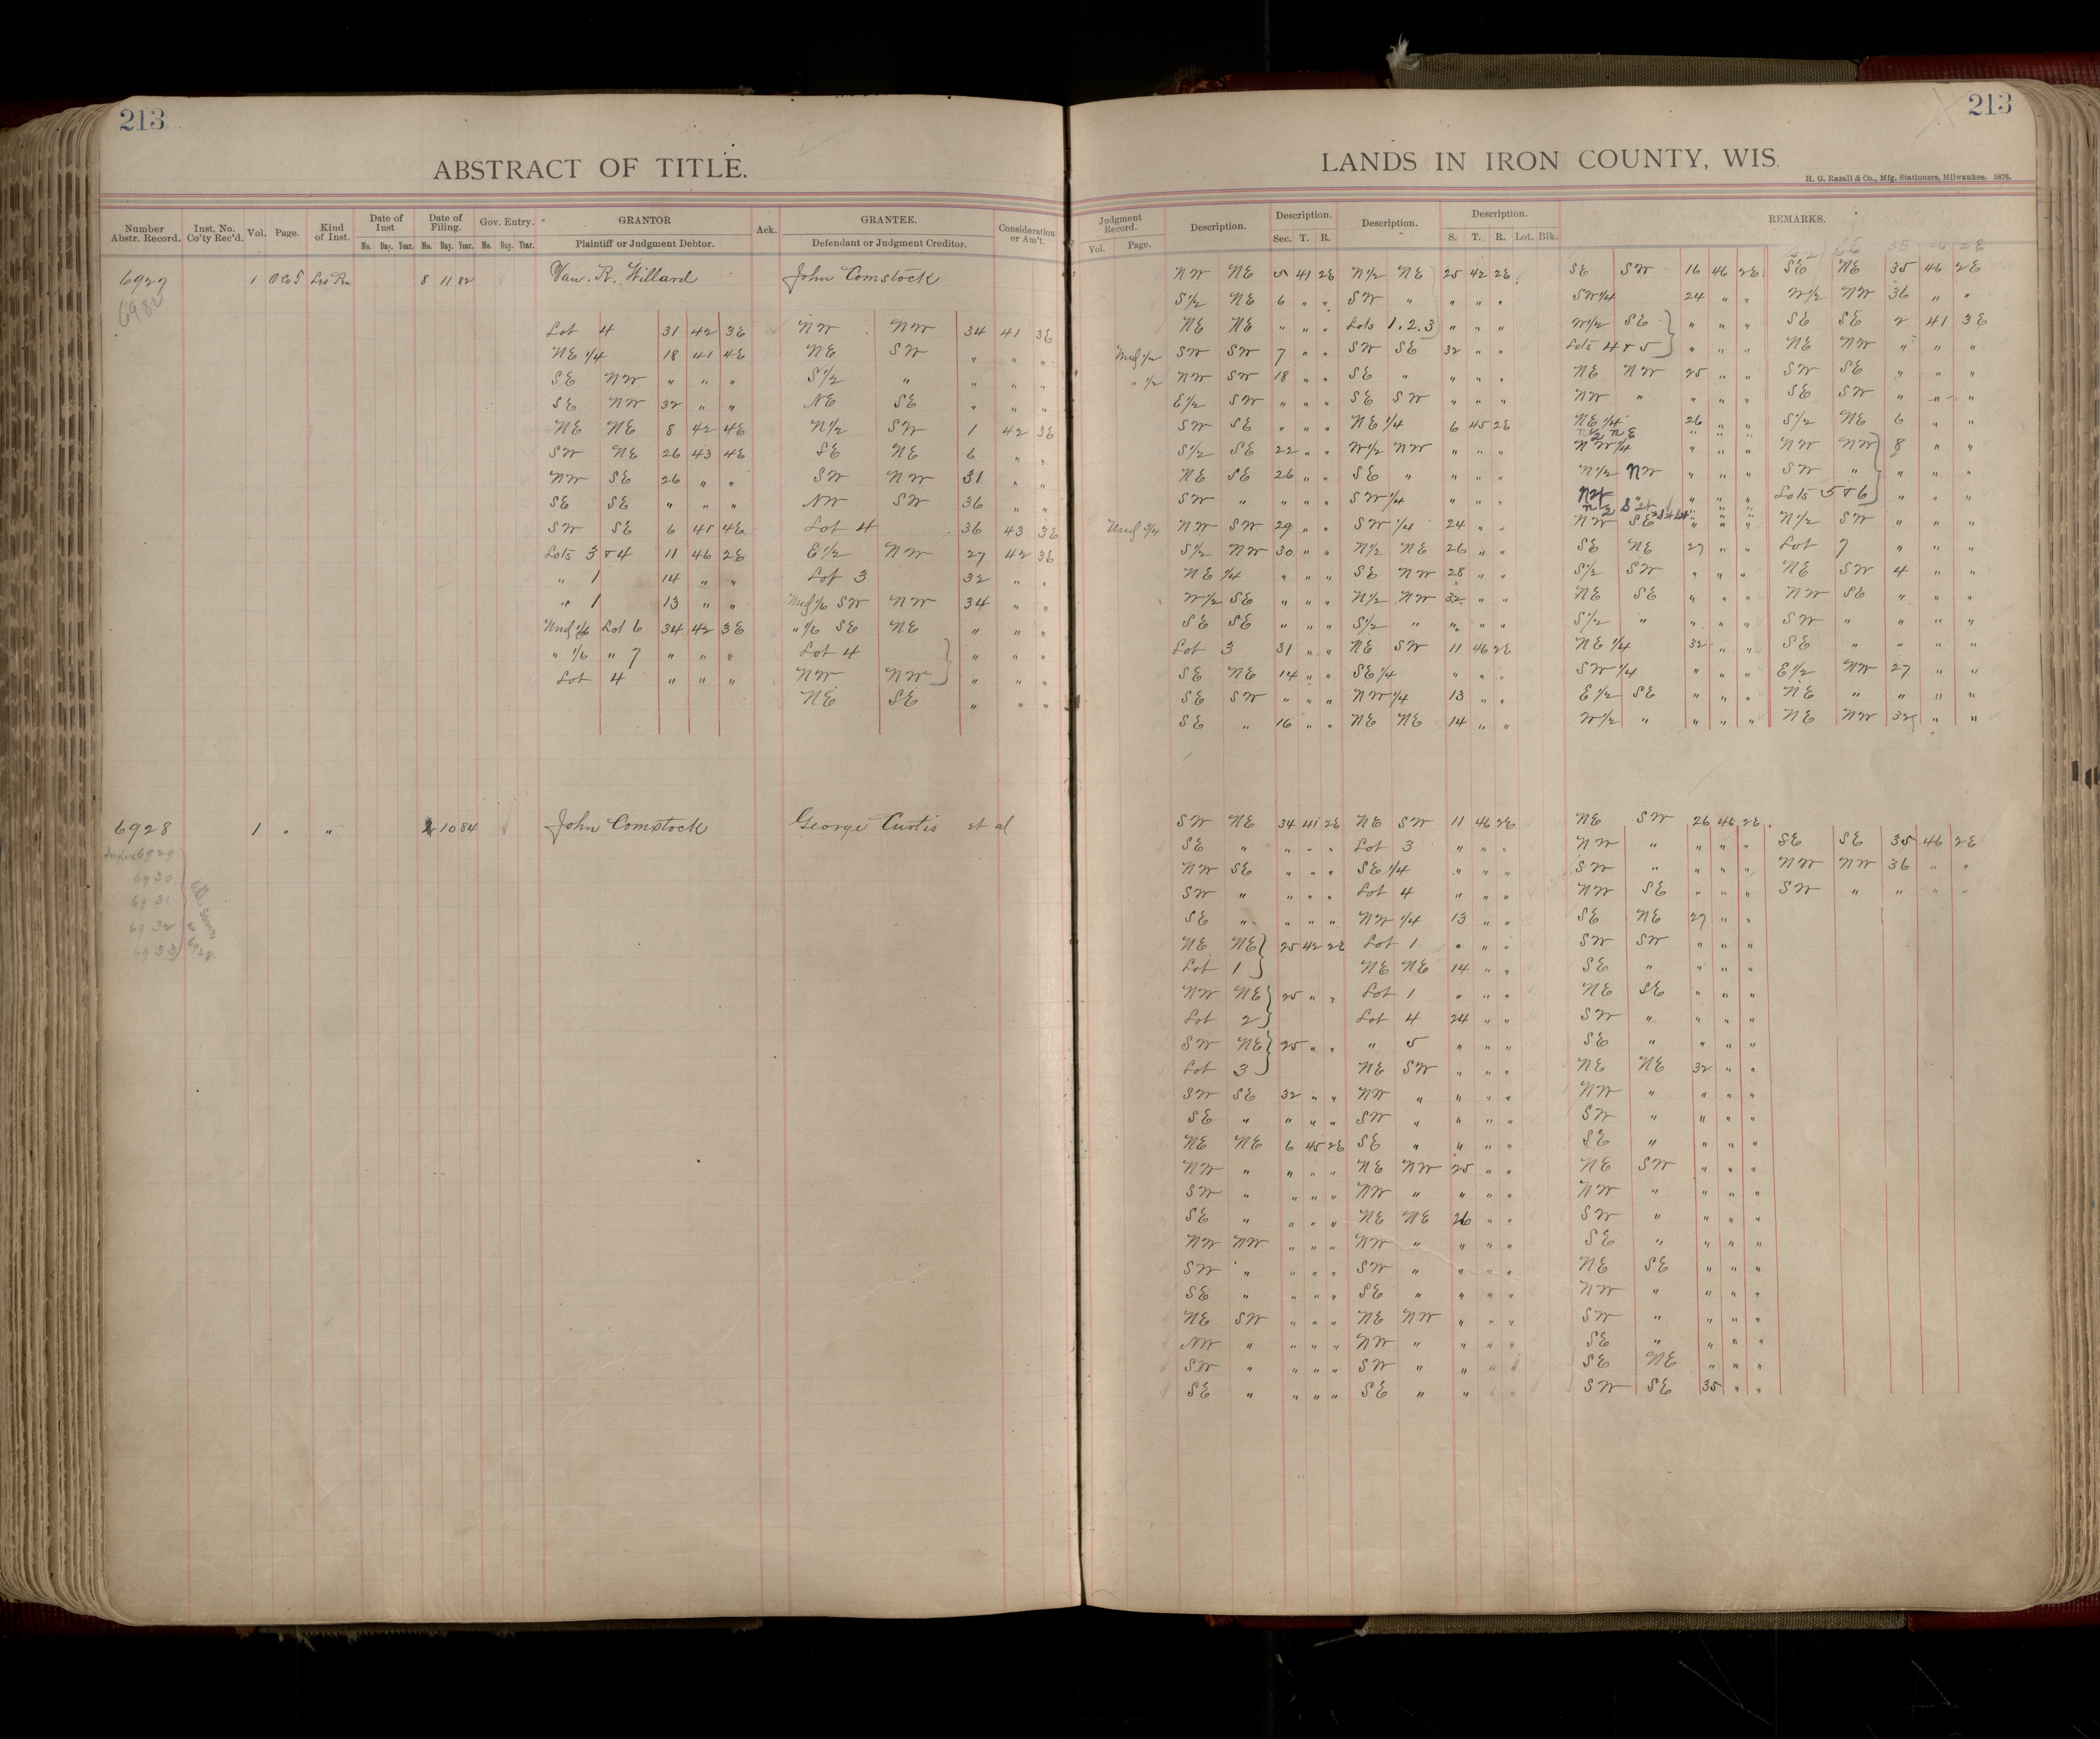 213
213
ABSTRACT OF TITLE.
LANDS IN IRON COUNTY, WIS.
H. G. Razall & Co., Mfg. Stationers, Milwaukee. 5878.
Number Abstr. Record. Inst. No. Co'ty Rec'd. Vol. Page. Kind of Inst. Date of Inst Mo. Day. Year. Date of Filing. Mo. Day. Year. Gov. Entry. Mo. Day. Year. GRANTOR Plaintiff or Judgment Debtor. Ack. GRANTEE. Defendant or Judgment Creditor. Consideration or Am't.
Judgment Record. Vol. Page. Description. Description. Sec. T. R. Description. Description. S. T. R. Lot. Blk. REMARKS.
6927 1 8 11 82 Van. R. Willard John Comstock
6982
Lot 4 31 42 3E NW NW 34 41 3E
NE 1/4 18 41 4E NE SW " " "
SE NW " " " S1/2 " " " "
SE NW 32 " " NE SE " " "
NE NE 8 42 4E N1/2 SW 1 42 3E
SW NE 26 43 4E SE NE 6 " "
NW SE 26 " " SW NW 31 " "
SE SE " " " NW SW 36 " "
SW SE 6 45 4E Lot 4 36 43 3E
Lots 3 & 4 11 46 2E E1/2 NW 27 42 3E
" 1 14 " " Lot 3 32 " "
" 1 13 " " Und 1/6 SW NW 34 " "
Und 1/6 Lot 6 34 42 3E " 1/6 SE NE " " "
" 1/6 " 7 " " " Lot 4 " " "
Lot 4 " " " NW NW " " "
NE SE " " "
NW NE 5 41 2E N1/2 NE 25 42 2E SE SW 16 46 2E SE NE 35 46 2E
S1/2 NE 6 " " SW " " " " SW1/4 24 " " W1/2 NW 36 " "
NE NE " " " Lots 1.2.3 " " " W1/2 SE " " " SE SE 2 41 3E
Und 1/2 SW SW 7 " " SW SE 32 " " Lots 4 & 5 " " " NE NW " " "
" 1/2 NW SW 18 " " SE " " " " NE NW 25 " " SW SE " " "
E1/2 SW " " " SE SW " " " NW " " " " SE SW " " "
SW SE " " " NE 1/4 6 45 2E NE 1/4 26 " " S1/2 NE 6 " "
S1/2 SE 22 " " W1/2 NW " " " NW 1/4 " " " NW NW 8 " "
NE SE 26 " " SE " " " " N1/2 NW " " " SW " " " "
SW " " " " SW 1/4 " " " " " " Lots 5 & 6 " " "
Und 3/4 NW SW 29 " " SW 1/4 24 " " NW SE " " " N1/2 SW " " "
S1/2 NW 30 " " N1/2 NE 26 " " SE NE 27 " " Lot 7 " " "
NE 1/4 " " " SE NW 28 " " S1/2 SW " " " NE SW 4 " "
W1/2 SE " " " N1/2 NW 32 " " NE SE " " " NW SE " " "
SE SE " " " S1/2 " " " " S1/2 " " " " SW " " " "
Lot 3 31 " " NE SW 11 46 2E NE 1/4 32 " " SE " " " "
SE NE 14 " " SE 1/4 " " " SW 1/4 " " " E1/2 NW 27 " "
SE SW " " " NW 1/4 13 " " E1/2 SE " " " NE " " " "
SE " 16 " " NE NE 14 " " W1/2 " " " " NE NW 32 " "
6928 1 " " 2 10 84 John Comstock George Curtis et al
Index 6929
6930
6931
6932
6933
SW NE 34 41 2E NE SW 11 46 2E NE SW 26 46 2E
SE " " " " Lot 3 " " " NW " " " " SE SE 35 46 2E
NW SE " " " SE 1/4 " " " SW " " " " NW NW 36 " "
SW " " " " Lot 4 " " " NW SE " " " SW " " " "
SE " " " " NW 1/4 13 " " SE NE 27 " "
NE NE 25 42 2E Lot 1 " " " SW SW " " "
Lot 1 NE NE 14 " " SE " " " "
NW NE 25 " " Lot 1 " " " NE SE " " "
Lot 2 Lot 4 24 " " SW " " " "
SW NE 25 " " " 5 " " " SE " " " "
Lot 3 NE SW " " " NE NE 32 " "
SW SE 32 " " NW " " " " NW " " " "
SE " " " " SW " " " " SW " " " "
NE NE 6 45 2E SE " " " " SE " " " "
NW " " " " NE NW 25 " " NE SW " " "
SW " " " " NW " " " " NW " " " "
SE " " " " NE NE 26 " " SW " " " "
NW NW " " " NW " " " " SE " " " "
SW " " " " SW " " " " NE SE " " "
SE " " " " SE " " " " NW " " " "
NE SW " " " NE NW " " " SW " " " "
NW " " " " NW " " " " SE " " " "
SW " " " " SW " " " " SE NE " " "
SE " " " " SE " " " " SW SE 35 " "